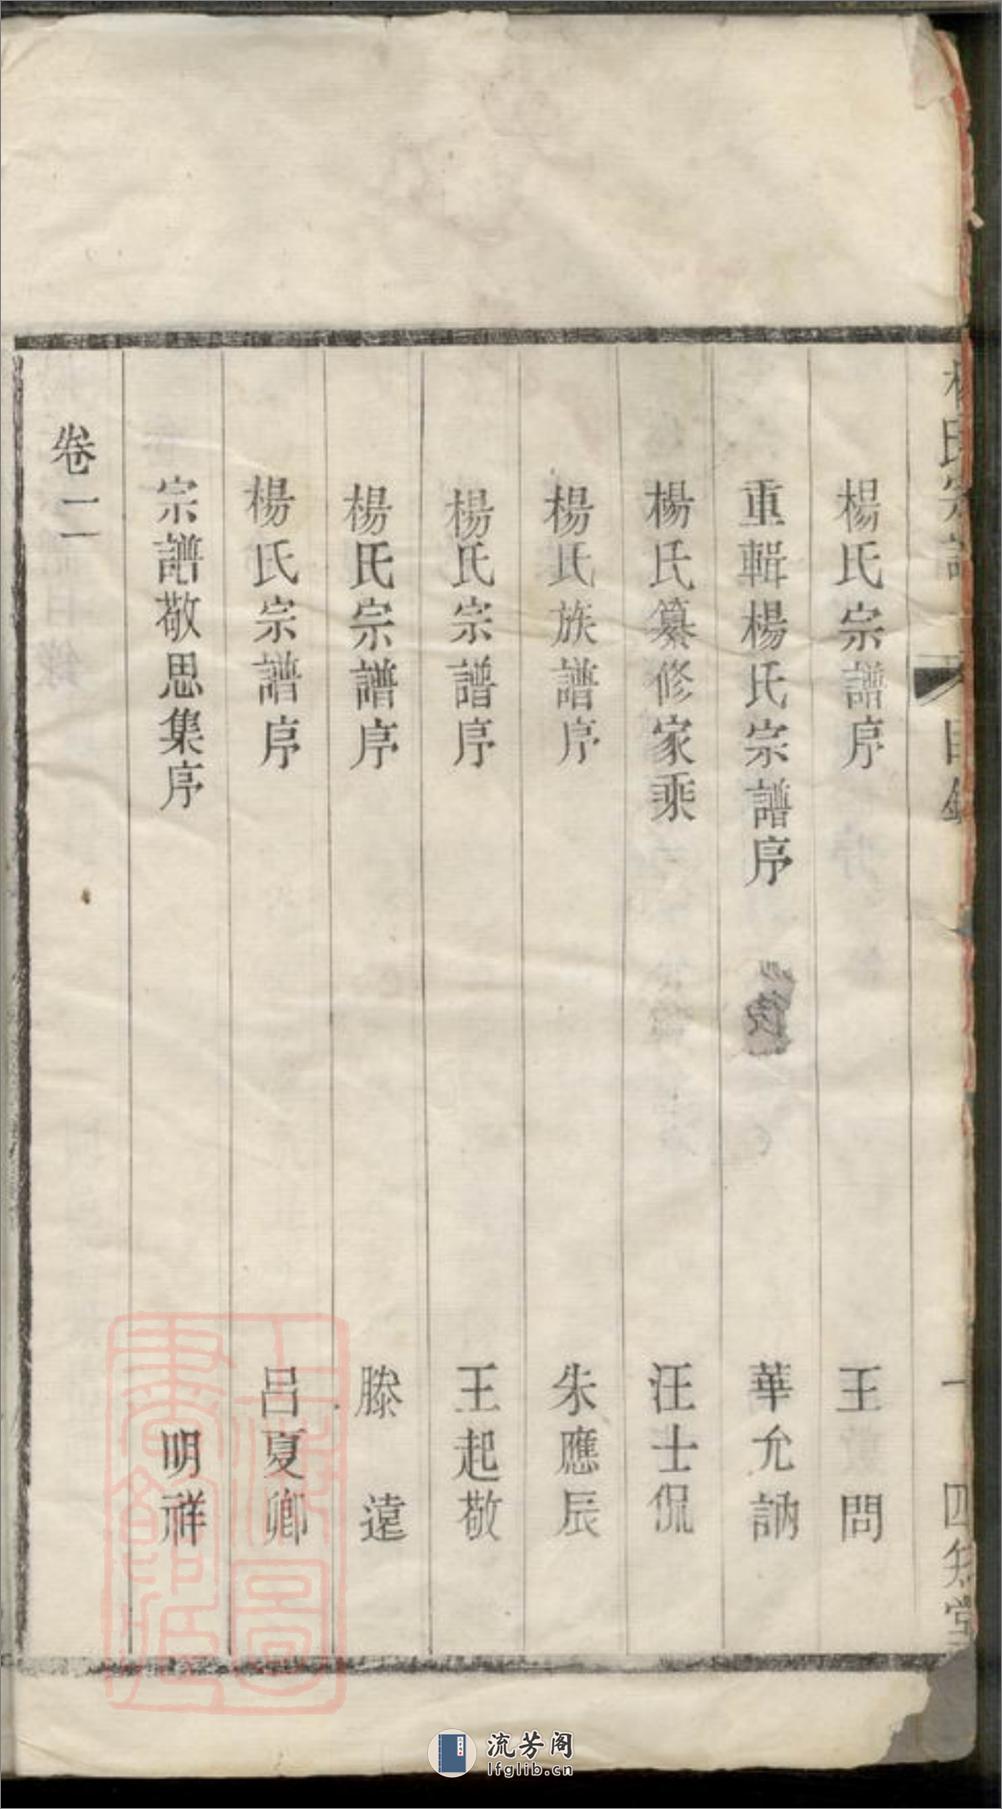 楊氏宗譜 目錄 一 四知堂
楊氏宗譜序 王問
重輯楊氏宗譜序 華允訥
楊氏纂修家乘 汪士侃
楊氏族譜序 朱應辰
楊氏宗譜序 王起敬
楊氏宗譜序 滕遠
楊氏宗譜序 呂夏卿
宗譜敬思集序 明祥
卷二
上海圖書館藏
流芳阁
lfglib.cn